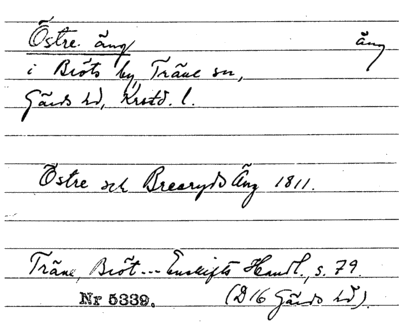 Östre äng äng
i Biöts by, Träne sn,
Gärds hd, Krstd. l.
Östre och Brearyds Äng 1811.
Träne, Biöt... Enskifts Handl., s. 79.
Nr 5339. (D16 Gärds hd).